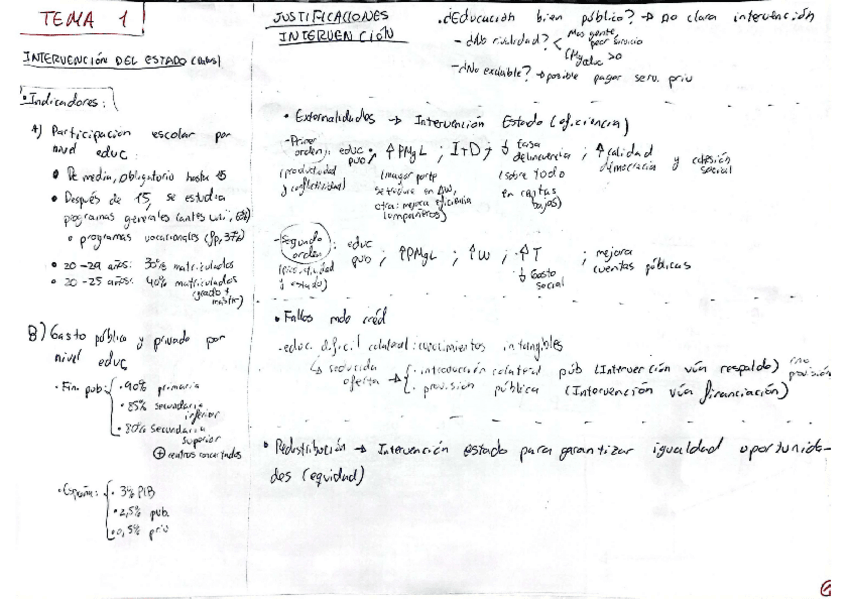 TEMA 1
INTERVENCIÓN DEL ESTADO
• Indicadores:
A) Participación escolar por
nivel educ:
• De media, obligatorio hasta 15
• Después de 15, se estudia
programas generales (antes uni,
o programas vocacionales (fp, 37%)
• 20-29 años: 30% matriculados
• 20-25 años: 40% matriculados
(grado +
master)
B) Gasto público y privado por
nivel educ
• Fin. pub: • 90% primaria
• 85% secundaria
inferior
• 80% secundaria
superior
⊕ centros concertados
• España: • 3% PIB
• 2,5% pub.
• 0,5% priv
JUSTIFICACIONES
INTERVENCIÓN
• ¿Educación bien público? → no clara intervención
- ¿No rivalidad? < Mas gente,
peor servicio
CMg educ > 0
- ¿No excluible? → posible pagar serv. priv
• Externalidades → Intervención Estado (eficiencia)
- Primer
orden: educ pub: ↑PMgL ; I+D ; ↓ tasa
delincuencia ; ↑ calidad
democracia y cohesión
social
(productividad
y conflictividad)
(mayor parte
se traduce en ΔW,
otra: mejora eficiencia
compañeros)
(sobre todo
en rentas
bajas)
- Segundo
orden: educ
pub ; ↑PMgL ; ↑W ; ↑T ; mejora
cuentas públicas
y estado)
↓ Gasto
social
• Fallos mdo créd
- educ. difícil colateral: conocimientos intangibles
↳ reducida
oferta → • introducción colateral púb (Intervención vía respaldo) (no
provisión)
• provisión pública (Intervención vía financiación)
• Redistribución → Intervención estado para garantizar igualdad oportunida-
des (equidad)